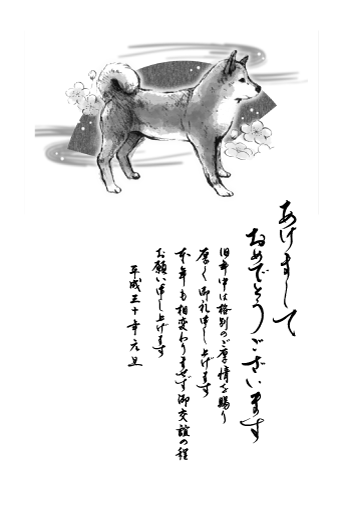 あけまして
おめでとうございます
旧年中は格別のご厚情を賜り
厚く御礼申し上げます
本年も相変わりませず御交誼の程
お願い申し上げます
平成三十年元旦